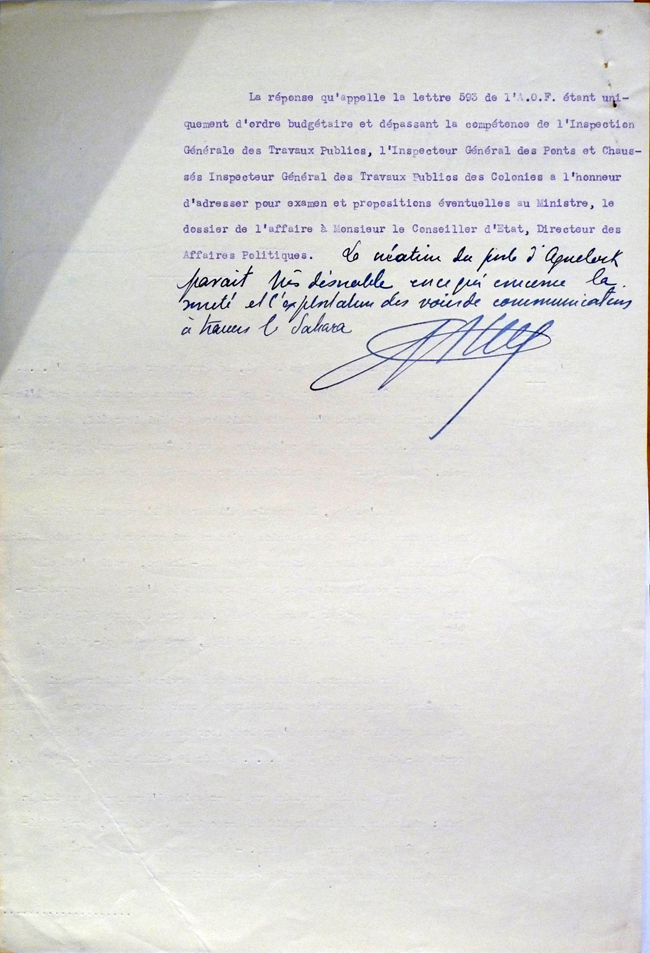 La réponse qu'appelle la lettre 593 de l'A.O.F. étant uni-
quement d'ordre budgétaire et dépassant la compétence de l'Inspection
Générale des Travaux Publics, l'Inspecteur Général des Ponts et Chaus-
sés Inspecteur Général des Travaux Publics des Colonies a l'honneur
d'adresser pour examen et propositions éventuelles au Ministre, le
dossier de l'affaire à Monsieur le Conseiller d'Etat, Directeur des
Affaires Politiques. La création du poste d'Aguelock
parait très désirable en ce qui concerne la
sureté et l'exploitation des voies de communications
à travers le Sahara